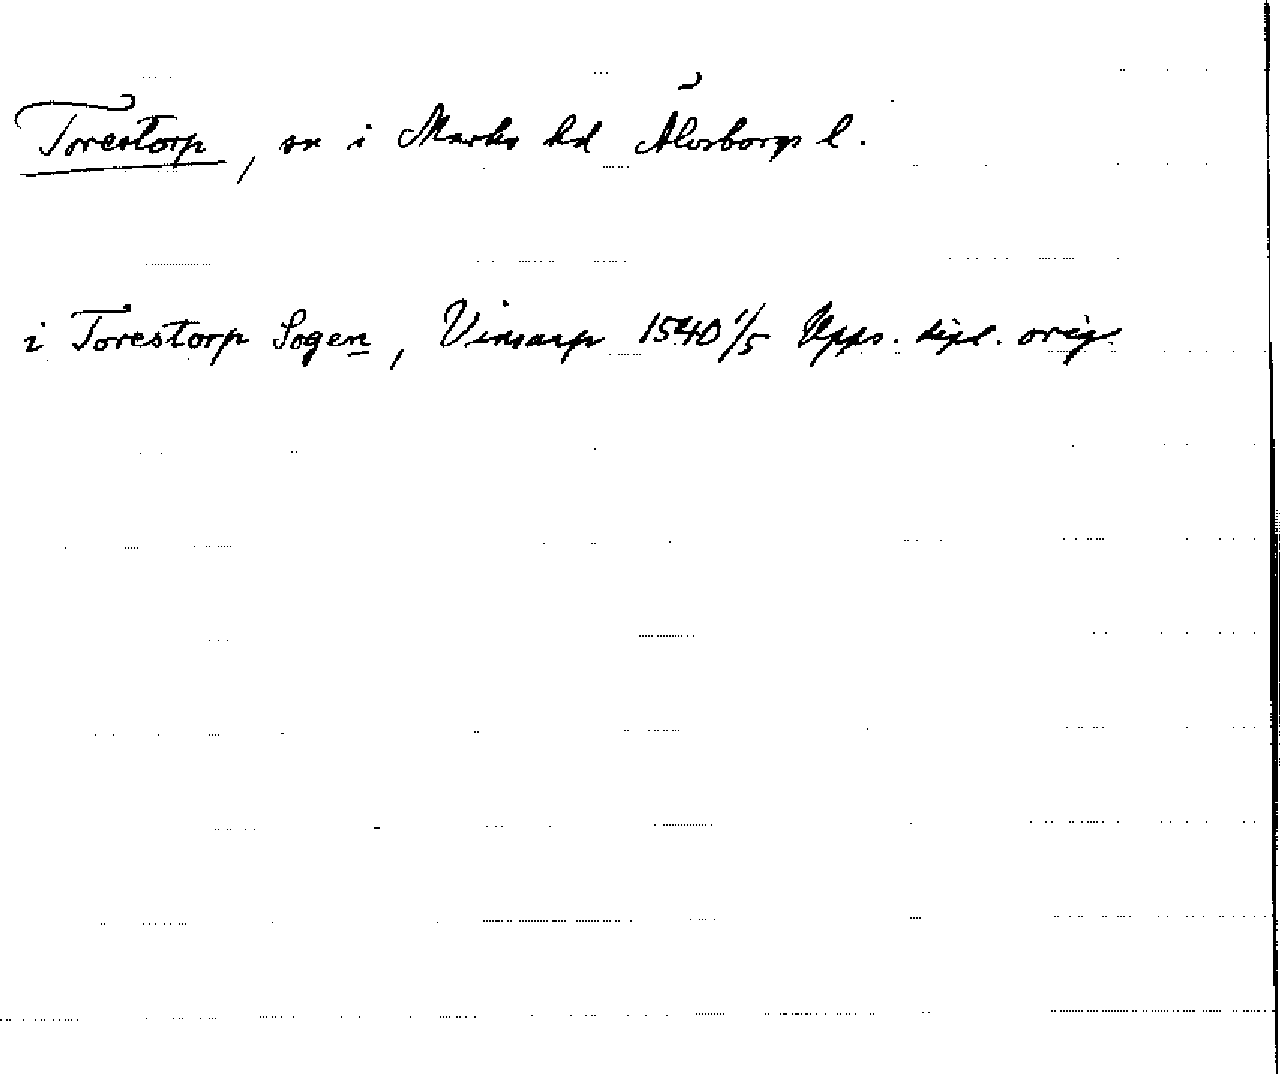 Torestorp, sn i Marks hd Älvsborgs l.
i Torestorp Sogen, Vinsarp 1540 1/5 Upps. dipl. orig.